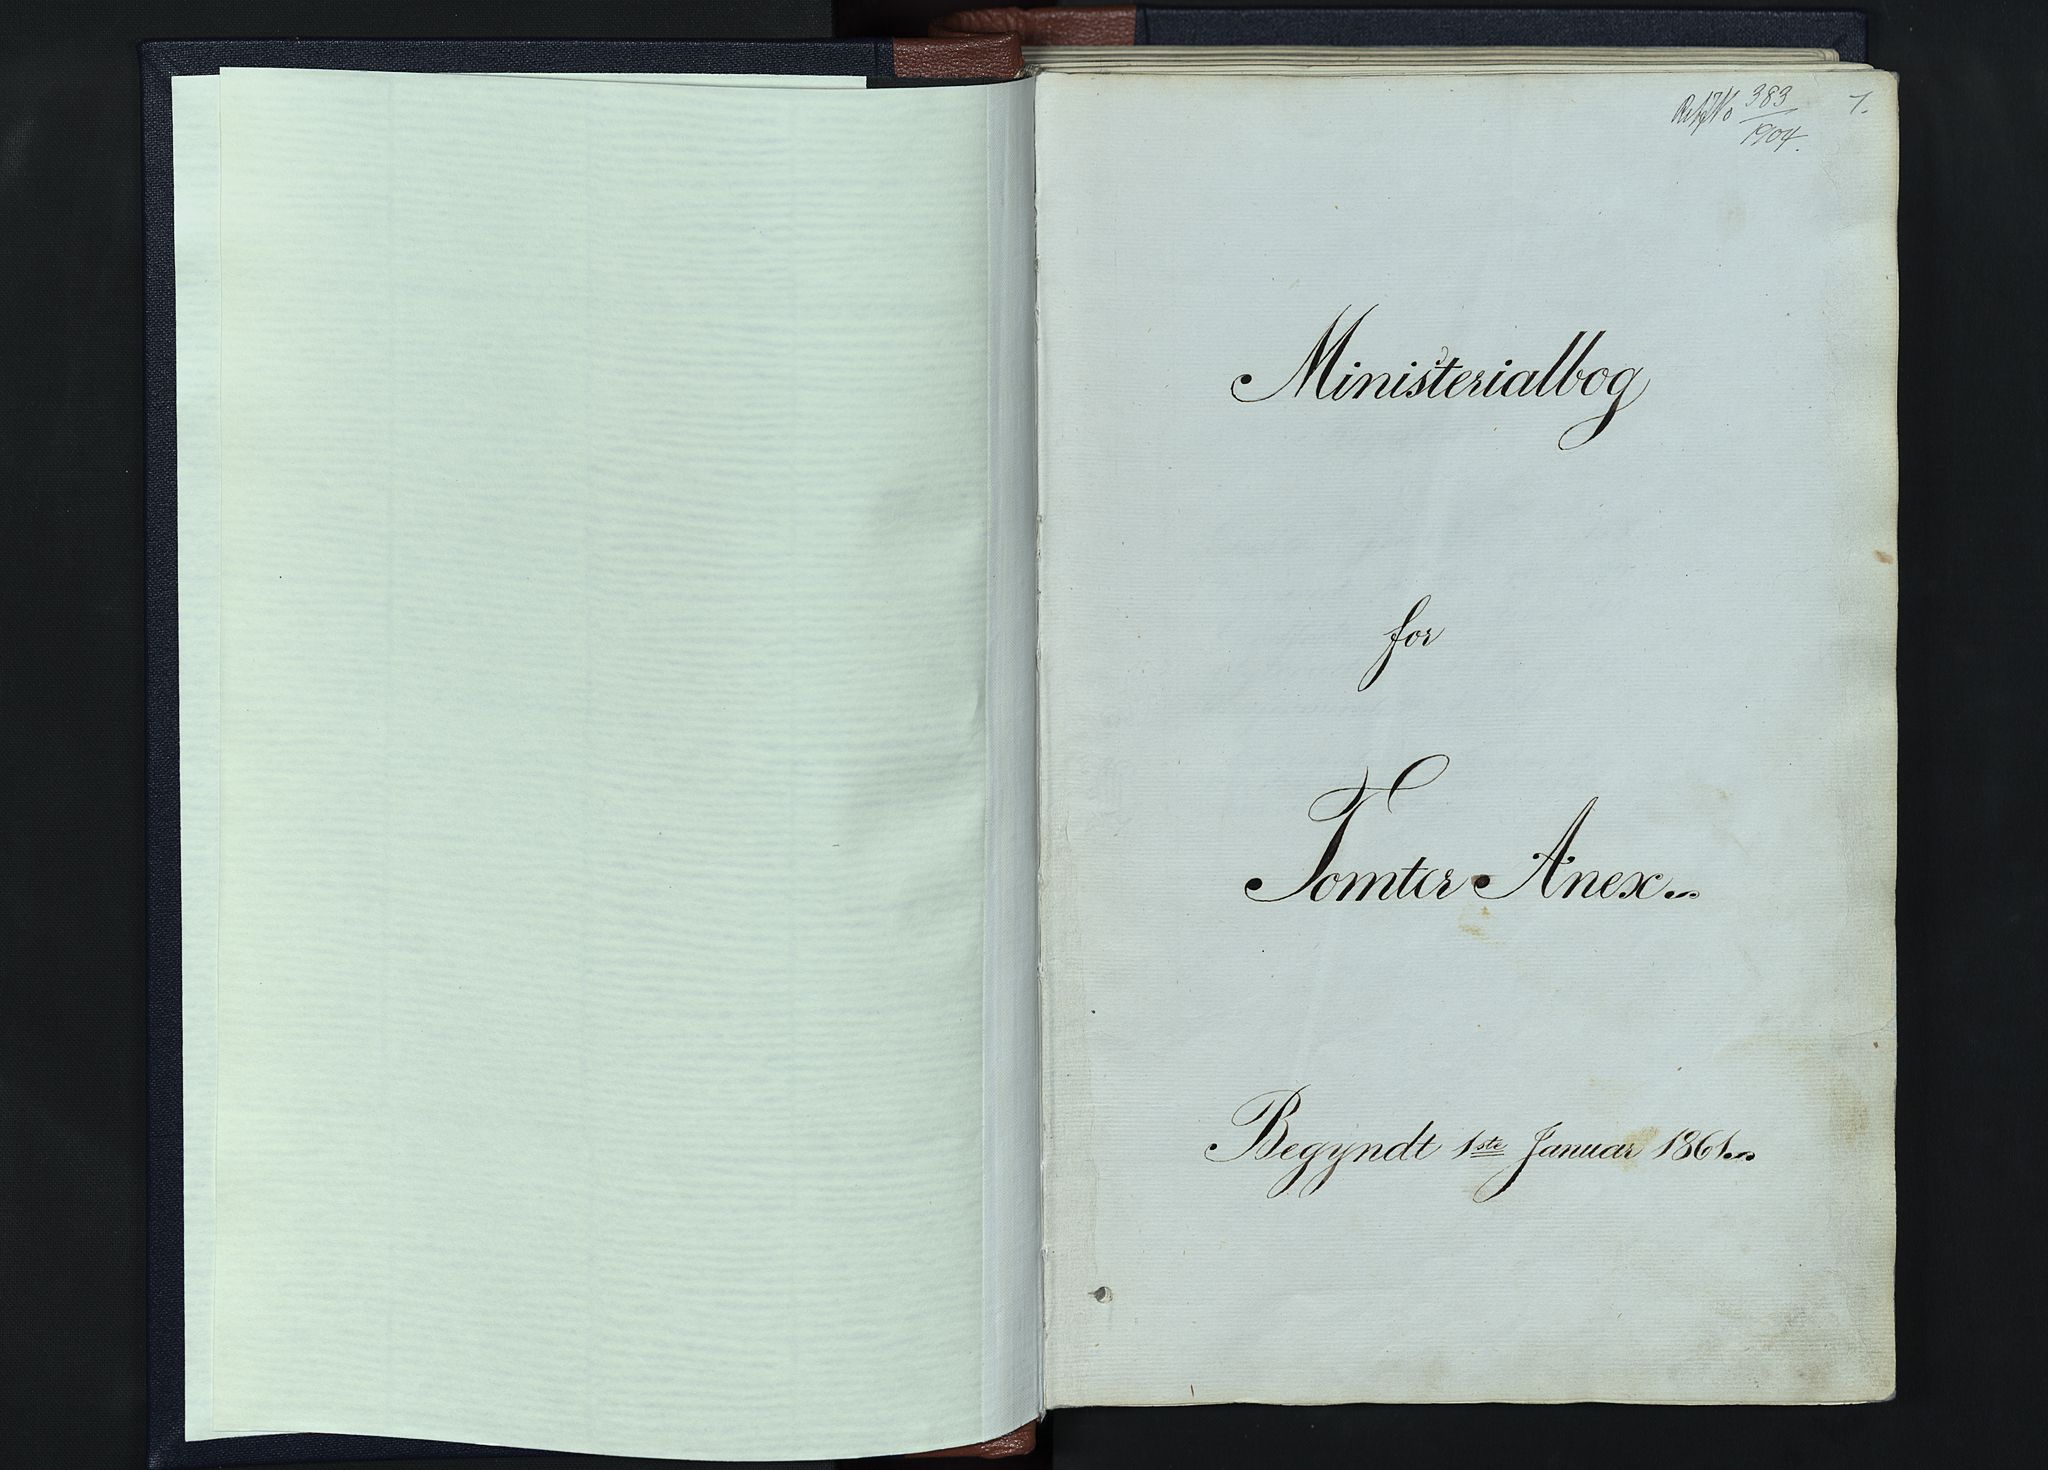 383
1904.
1.
Ministerialbog
for
Tomter Anex
Begyndt 1ste Januar 1861